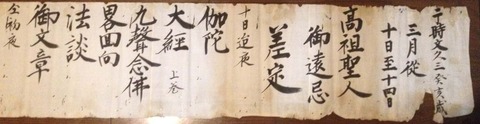 于時文久三癸亥歳
三月従
十日至十四日
高祖聖人
御遠忌
差定
十日迨夜
伽陀
大經 上巻
九聲念佛
畧回向
法談
御文章
全初夜